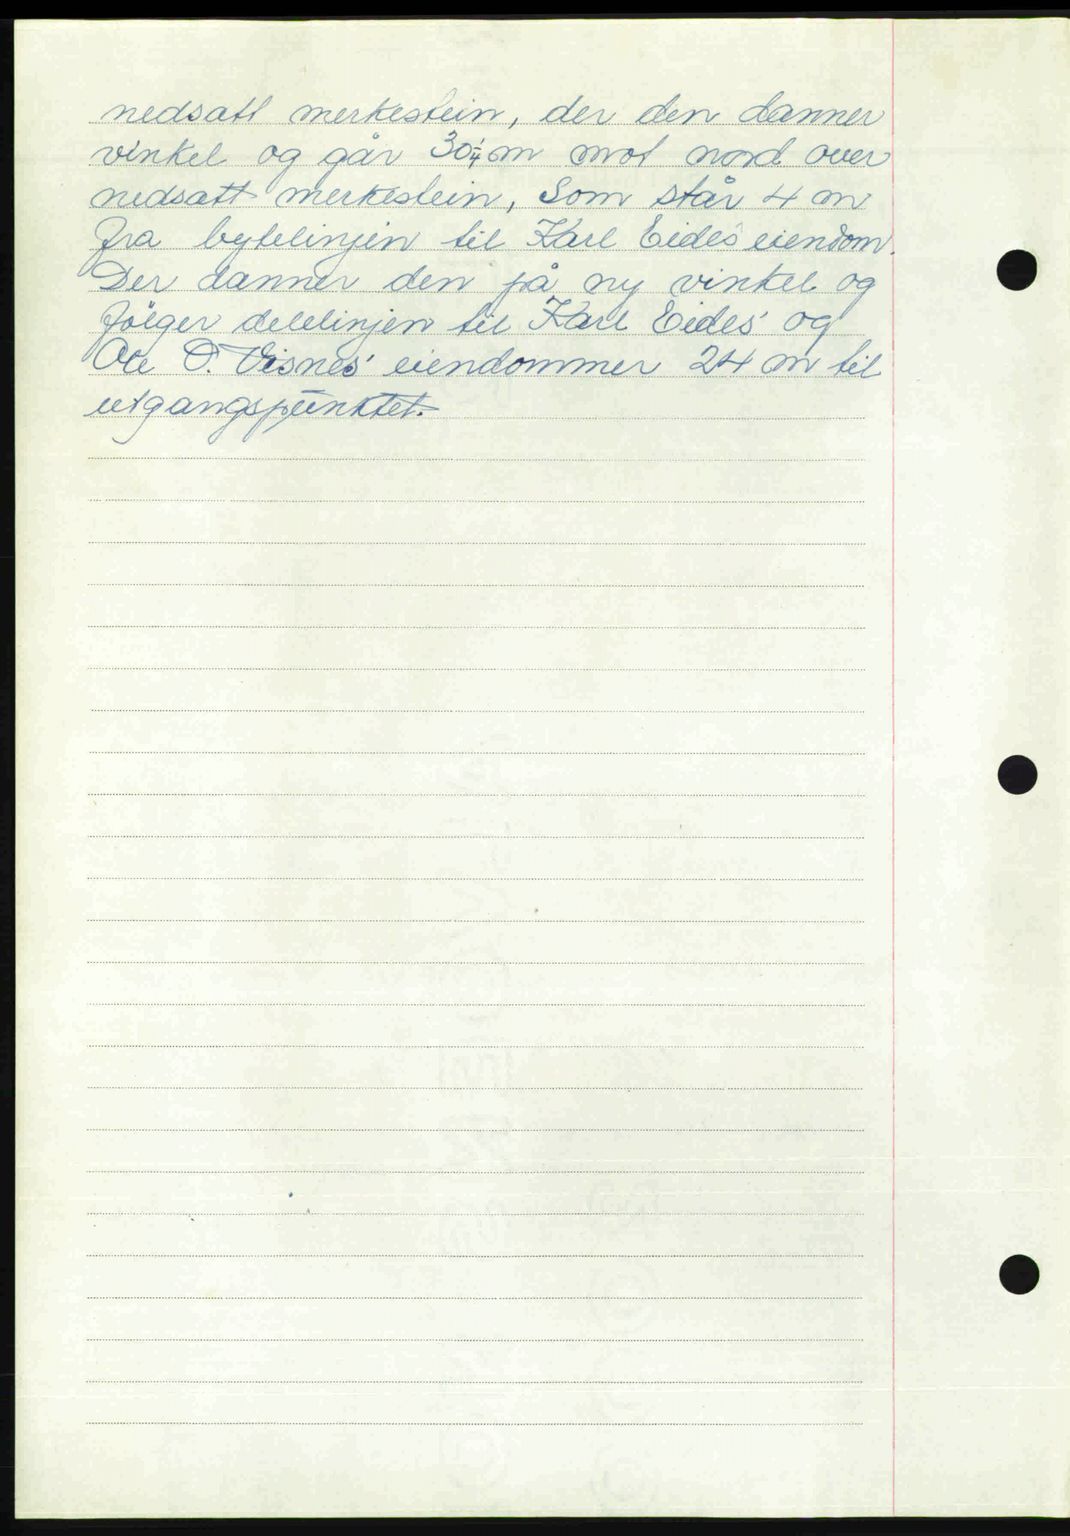 nedsatt merkestein, der den danner
vinkel og går 30¼ m mot nord over
nedsatt merkestein, Som står 4 m
fra bytelinjen til Karl Eides' eiendom.
Der danner den på ny vinkel og
fölger delelinjen til Karl Eides' og
O. Visnes' eiendommer 24 m til
utgangspunktet.